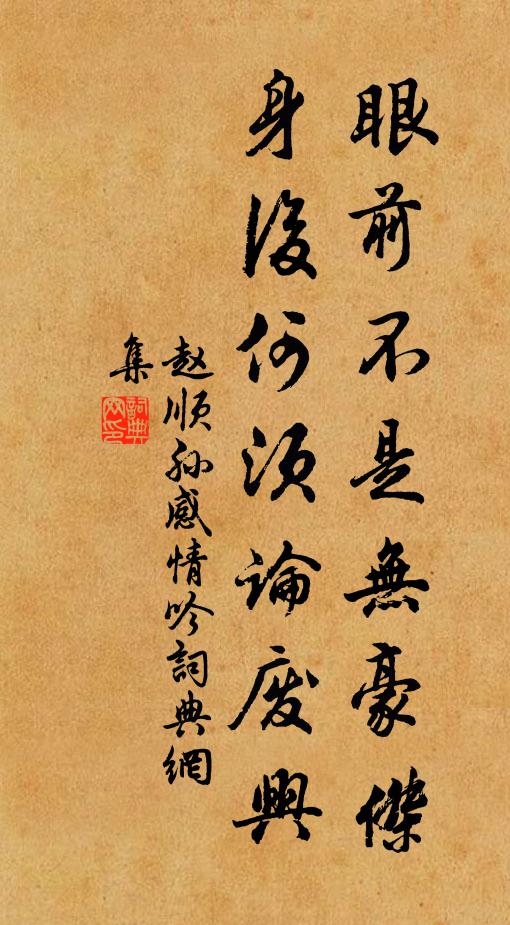 眼前不是無豪傑
身後何須論廢興
赵順孙感情吟詞典網
集
詞典網印